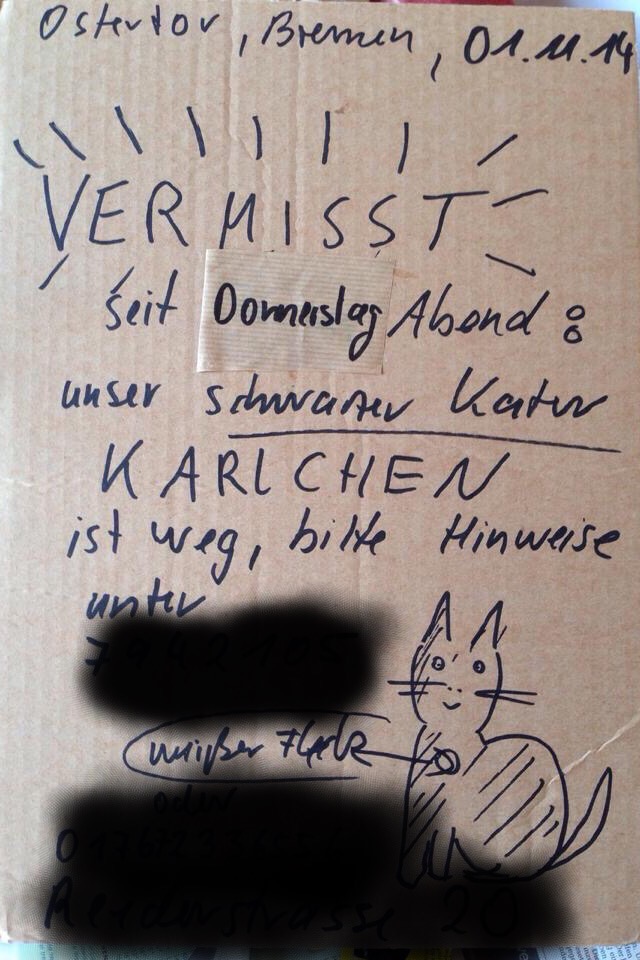 Ostertor, Bremen, 01.11.14
VERMISST
seit Donnerstag Abend:
unser schwarzer Kater
KARLCHEN
ist weg, bitte Hinweise
unter
weißer Fleck
oder